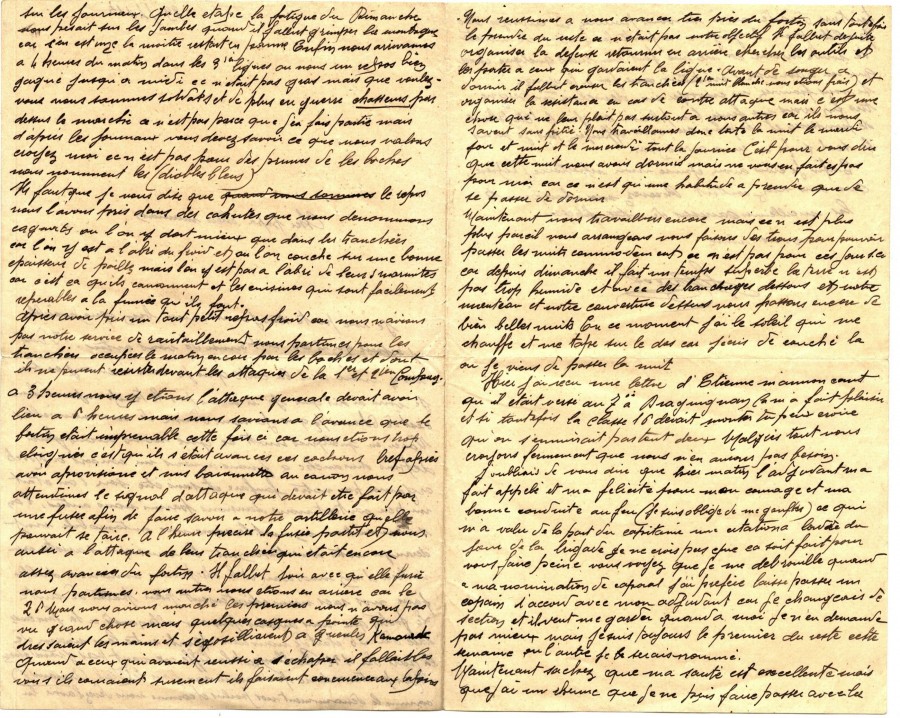 sur les journeaux. Quelle etape la fatigue du Dimanche
nous pesait sur les jambes quand il fallut grimper la montagne
car l'on est onze la moitie restait en panne Enfin nous arrivames
a 4 heures du matin dans les 3ième lignes ou nous un repos bien
gagné jusqu'a midi ce n'etait pas gras mais que voulez-
vous nous sommes soldats et de plus en guerre chasseurs pas
dessus le marché ce n'est pas parce que j'en fais partie mais
d'apres les journaux vous devez savoir ce que nous valons
croyez moi ce n'est pas pour des prunes de les boches
nous nomment les (diables bleus)
Il faut que je vous dise que quand nous sommes le repos
nous l'avons pris dans des cahutes que nous denommons
cagnates ou l'on y dort mieux que dans les tranchées
car l'on y est a l'abri du froid et ou l'on couche sur une bonne
epaisseur de paille mais l'on y est pas a l'abri de leurs marmites
car c'est ca qu'ils canonnent et les cuisines qui sont facilement
reperables a la fumée qu'ils font.
Apres avoir pris un tout petit repas froid car nous n'avions
pas notre service de ravitaillement nous partimes pour les
tranchées occupées le matin encore par les boches et dont
ils ne purent resister devant les attaques de la 1ere et 2ien Compag.
a 3 heures nous y etions l'attaque generale devait avoir
lieu a 6 heures mais nous savions a l'avance que le
fortin etait imprenable cette fois ci car nous etions trop
eloignés c'est qu'ils s'etait avancés ces cochons bref apres
avoir aprovisionné et mis baionnette au canon nous
attendimes le signal d'attaque qui devait etre fait par
une fusée afin de faire savoir a notre artillerie qu'elle
pouvait se taire. A l'heure precise la fusée partit et nous
aussi a l'attaque de leurs tranchées qui etait encore
assez avancées du fortin. Il fallut voir avec qu'elle furie
nous partimes. nous autres nous etions en arriere car le
28 Mars nous avions marché les premiers nous n'avons pas
vu grand chose mais quelques casques a pointe qui
dressaient les mains et s'egosillaient a gueuler Kamarade
Quand a ceux qui avaient reussi a s'echaper il fallait les
voir s'ils couraient surement ils faisaient concurrence aux lapins
Nous reussimes a nous avancer tres pres du fortin sans toutefois
le prendre du reste ce n'etait pas notre objectif Il fallut de suite
organiser la defense retourner en arriere chercher les outils et
les porter a ceux qui gardaient la ligne. Avant de songer a
dormir il fallut creuser les tranchées et
organiser la resistance en cas de contre attaque mais c'est une
chose qui ne leur plait pas surtout a nous autres car ils nous
savent sans pitié. Nous travaillames donc toute la nuit le mardi
jour et nuit et le mercredi tout la journée C'est pour vous dire
que cette nuit nous avons dormit mais ne vous en faites pas
pour moi car ce n'est qu'une habitude a prendre que de
se passer de dormir
Maintenant nous travaillons encore mais ce n'est plus
plus pareil nous arrangeons nous faisons des trous pour pouvoir
passer les nuits commodement ce n'est pas pour ces jours ci
car depuis dimanche il fait un temps superbe la terre n'est
pas trop humide et avec des branchages dessous et notre
manteau et notre couverture dessus nous passons encore de
bien belles nuits En ce moment j'ai le soleil qui me
chauffe et me tape sur le dos car j'ecris de couché la
ou je viens de passer la nuit
Hier j'ai recu une lettre d'Etienne m'annoncant
qu'il était versé au 7° a Draguignan Ca m'a fait plaisir
et si toutefois la classe 16 devait monter tu peux croire
qu'on s'ennuirait pas tout deux Malgres tout nous
croyons fermement que nous n'en aurons pas besoin.
J'oubliais de vous dire que hier matin l'adjudant m'a
fait appelé et m'a felicité pour mon courage et ma
bonne conduite au feu (Je suis obligé de me gonfler) ce qui
m'a valu de la part du capitaine une citation a l'ordre du
jour de la brigade je ne crois pas que ca soit fait pour
vous faire peine vous voyez que je me debrouille quand
a ma nomination de caporal j'ai preferé laisse passer un
copain d'accord avec mon adjudant car je changerais de
section et il veut me garder quand a moi je n'en demande
pas mieux mais je suis toujours le premier du reste cette
semaine ou l'autre je le serais nommé.
Maintenant sachez que ma santé est excellente mais
que j'ai un rhume que je ne puis faire passer avec les